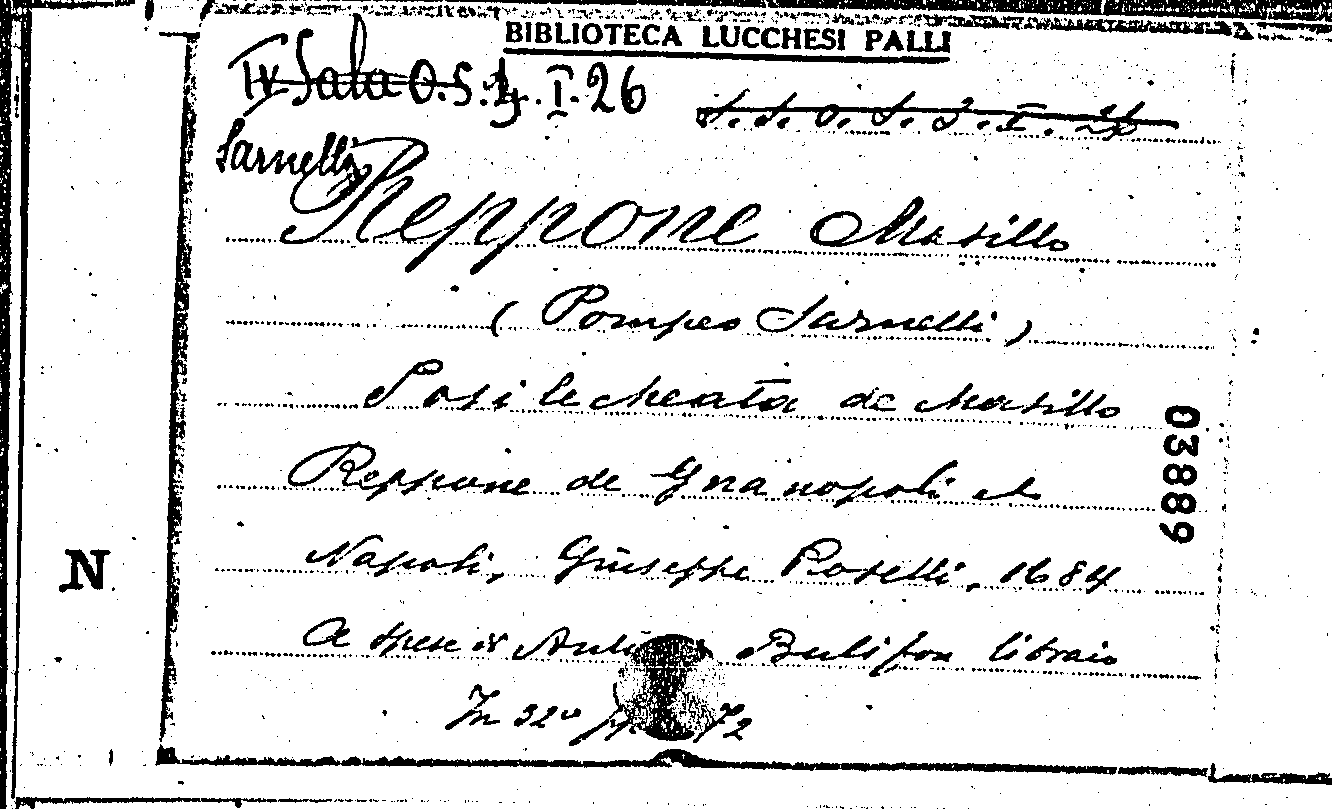 BIBLIOTECA LUCCHESI PALLI
IV Sala O.S.4.I.26
S.S.O.S.3.I.24
Sarnelli
Reppone Masillo
(Pompeo Sarnelli)
Posilecheata de Masillo
Reppone de Gnanopoli
Napoli, Giuseppe Roselli, 1684
A spese di Bulifon libraio
In 32°
03889
N